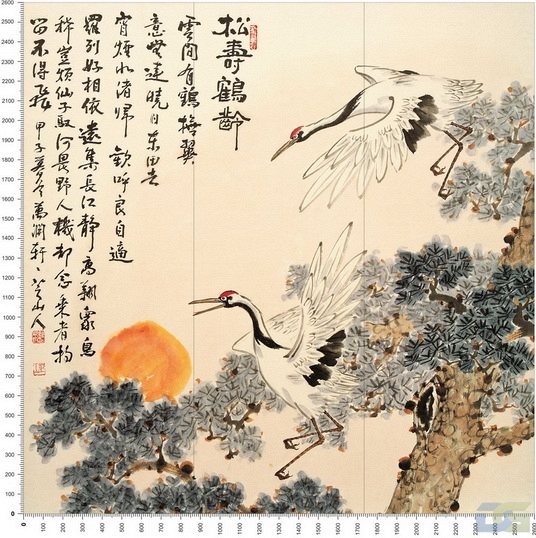 松壽鶴齡
雲間有鶴振翼
意豈遠曉日東田去
宵煙水渚歸 歡呼良自適
羅列好相依遠集長江靜高翔衆鳥
稀豈煩仙子馭何畏野人機却念乘者拘
留不得飛 甲子
山人
2600
2500
2400
2300
2200
2100
2000
1900
1800
1700
1600
1500
1400
1300
1200
1100
1000
900
800
700
600
500
400
300
200
100
0
0 100 200 300 400 500 600 700 800 900 1000 1100 1200 1300 1400 1500 1600 1700 1800 1900 2000 2100 2200 2300 2400 2500 2600